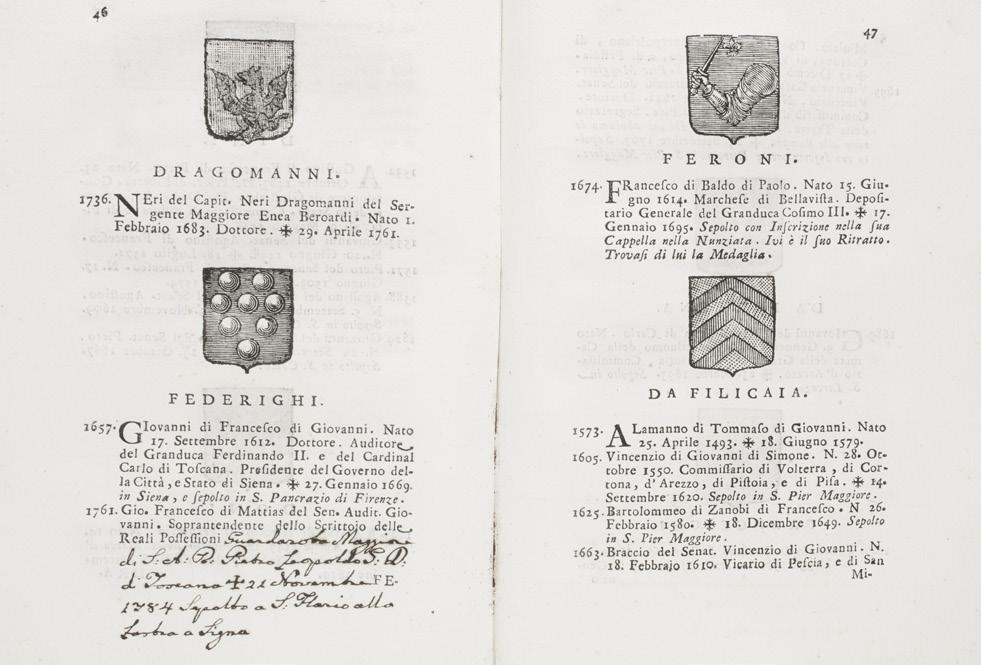 46
DRAGOMANNI.
1736. NEri del Capit. Neri Dragomanni del Ser-
gente Maggiore Enea Beroardi. Nato 1.
Febbraio 1683. Dottore. ✠ 29. Aprile 1761.
FEDERIGHI.
1657. GIovanni di Francesco di Giovanni. Nato
17. Settembre 1612. Dottore. Auditore
del Granduca Ferdinando II. e del Cardinal
Carlo di Toscana. Presidente del Governo del-
la Città, e Stato di Siena. ✠ 27. Gennaio 1669.
in Siena, e sepolto in S. Pancrazio di Firenze.
1761. Gio. Francesco di Mattias del Sen. Audit. Gio-
vanni. Soprantendente dello Scrittojo delle
Reali Possessioni Guardaroba Maggiore
di S. A. R. Pietro Leopoldo G. D.
d Toscana ✠ 21 Novembre FE-
1784 Sepolto a S. Ilario alla
Lastra a Signa
47
FERONI.
1674. FRancesco di Baldo di Paolo. Nato 15. Giu-
gno 1614. Marchese di Bellavista. Deposi-
tario Generale del Granduca Cosimo III. ✠ 17.
Gennaio 1695. Sepolto con Inscrizione nella sua
Cappella nella Nunziata. Ivi è il suo Ritratto.
Trovasi di lui la Medaglia.
DA FILICAIA.
1573. ALamanno di Tommaso di Giovanni. Nato
25. Aprile 1493. ✠ 18. Giugno 1579.
1605. Vincenzio di Giovanni di Simone. N. 28. Ot-
tobre 1550. Commissario di Volterra, di Cor-
tona, d'Arezzo, di Pistoia, e di Pisa. ✠ 14.
Settembre 1620. Sepolto in S. Pier Maggiore.
1625. Bartolommeo di Zanobi di Francesco. N 26.
Febbraio 1580. ✠ 18. Dicembre 1649. Sepolto
in S. Pier Maggiore.
1663. Braccio del Senat. Vincenzio di Giovanni. N.
18. Febbrajo 1610. Vicario di Pescia, e di San
Mi-